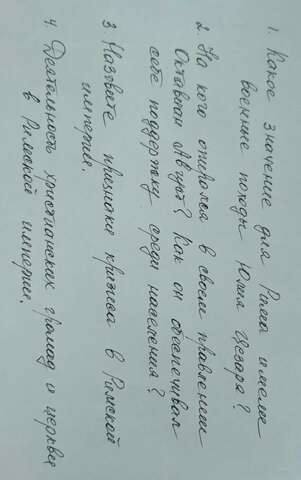 1. Какое значение для Рима имели
военные походы Юлия Цезаря?
2. На кого опирался в своем правлении
Октавиан Август? Как он обеспечивал
себе поддержку среди населения?
3. Назовите признаки кризиса в Римской
империи.
4. Деятельность христианских громад и церкви
в Римской империи.